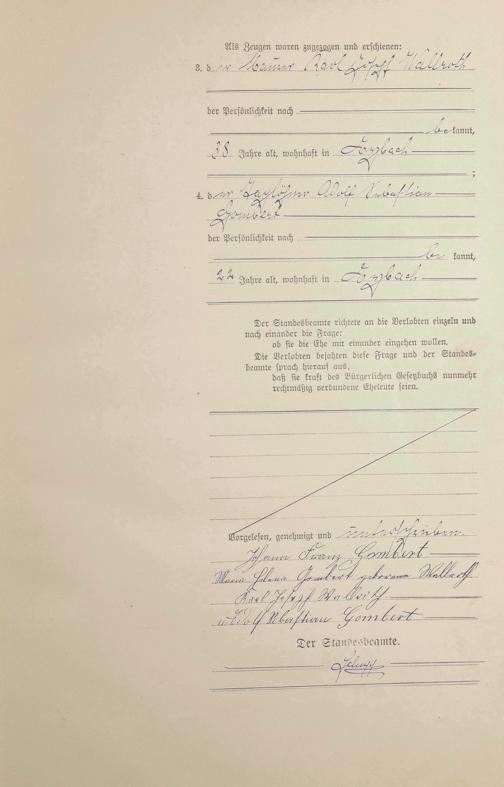 Als Zeugen waren zugezogen und erschienen:
3. der Maurer Karl Josef Wallroth
der Persönlichkeit nach
bekannt,
38 Jahre alt, wohnhaft in
4. der Taglöhner Adolf Sebastian
Gombert
der Persönlichkeit nach
bekannt,
22 Jahre alt, wohnhaft in
Der Standesbeamte richtete an die Verlobten einzeln und
nach einander die Frage:
ob sie die Ehe mit einander eingehen wollen.
Die Verlobten bejahten diese Frage und der Standes-
beamte sprach hierauf aus,
daß sie kraft des Bürgerlichen Gesetzbuchs nunmehr
rechtmäßig verbundene Eheleute seien.
Vorgelesen, genehmigt und unterschrieben.
Johann Franz Gombert
Maria Helena Gombert geborene Wallroth
Karl Josef Wallroth
Adolf Sebastian Gombert
Der Standesbeamte.